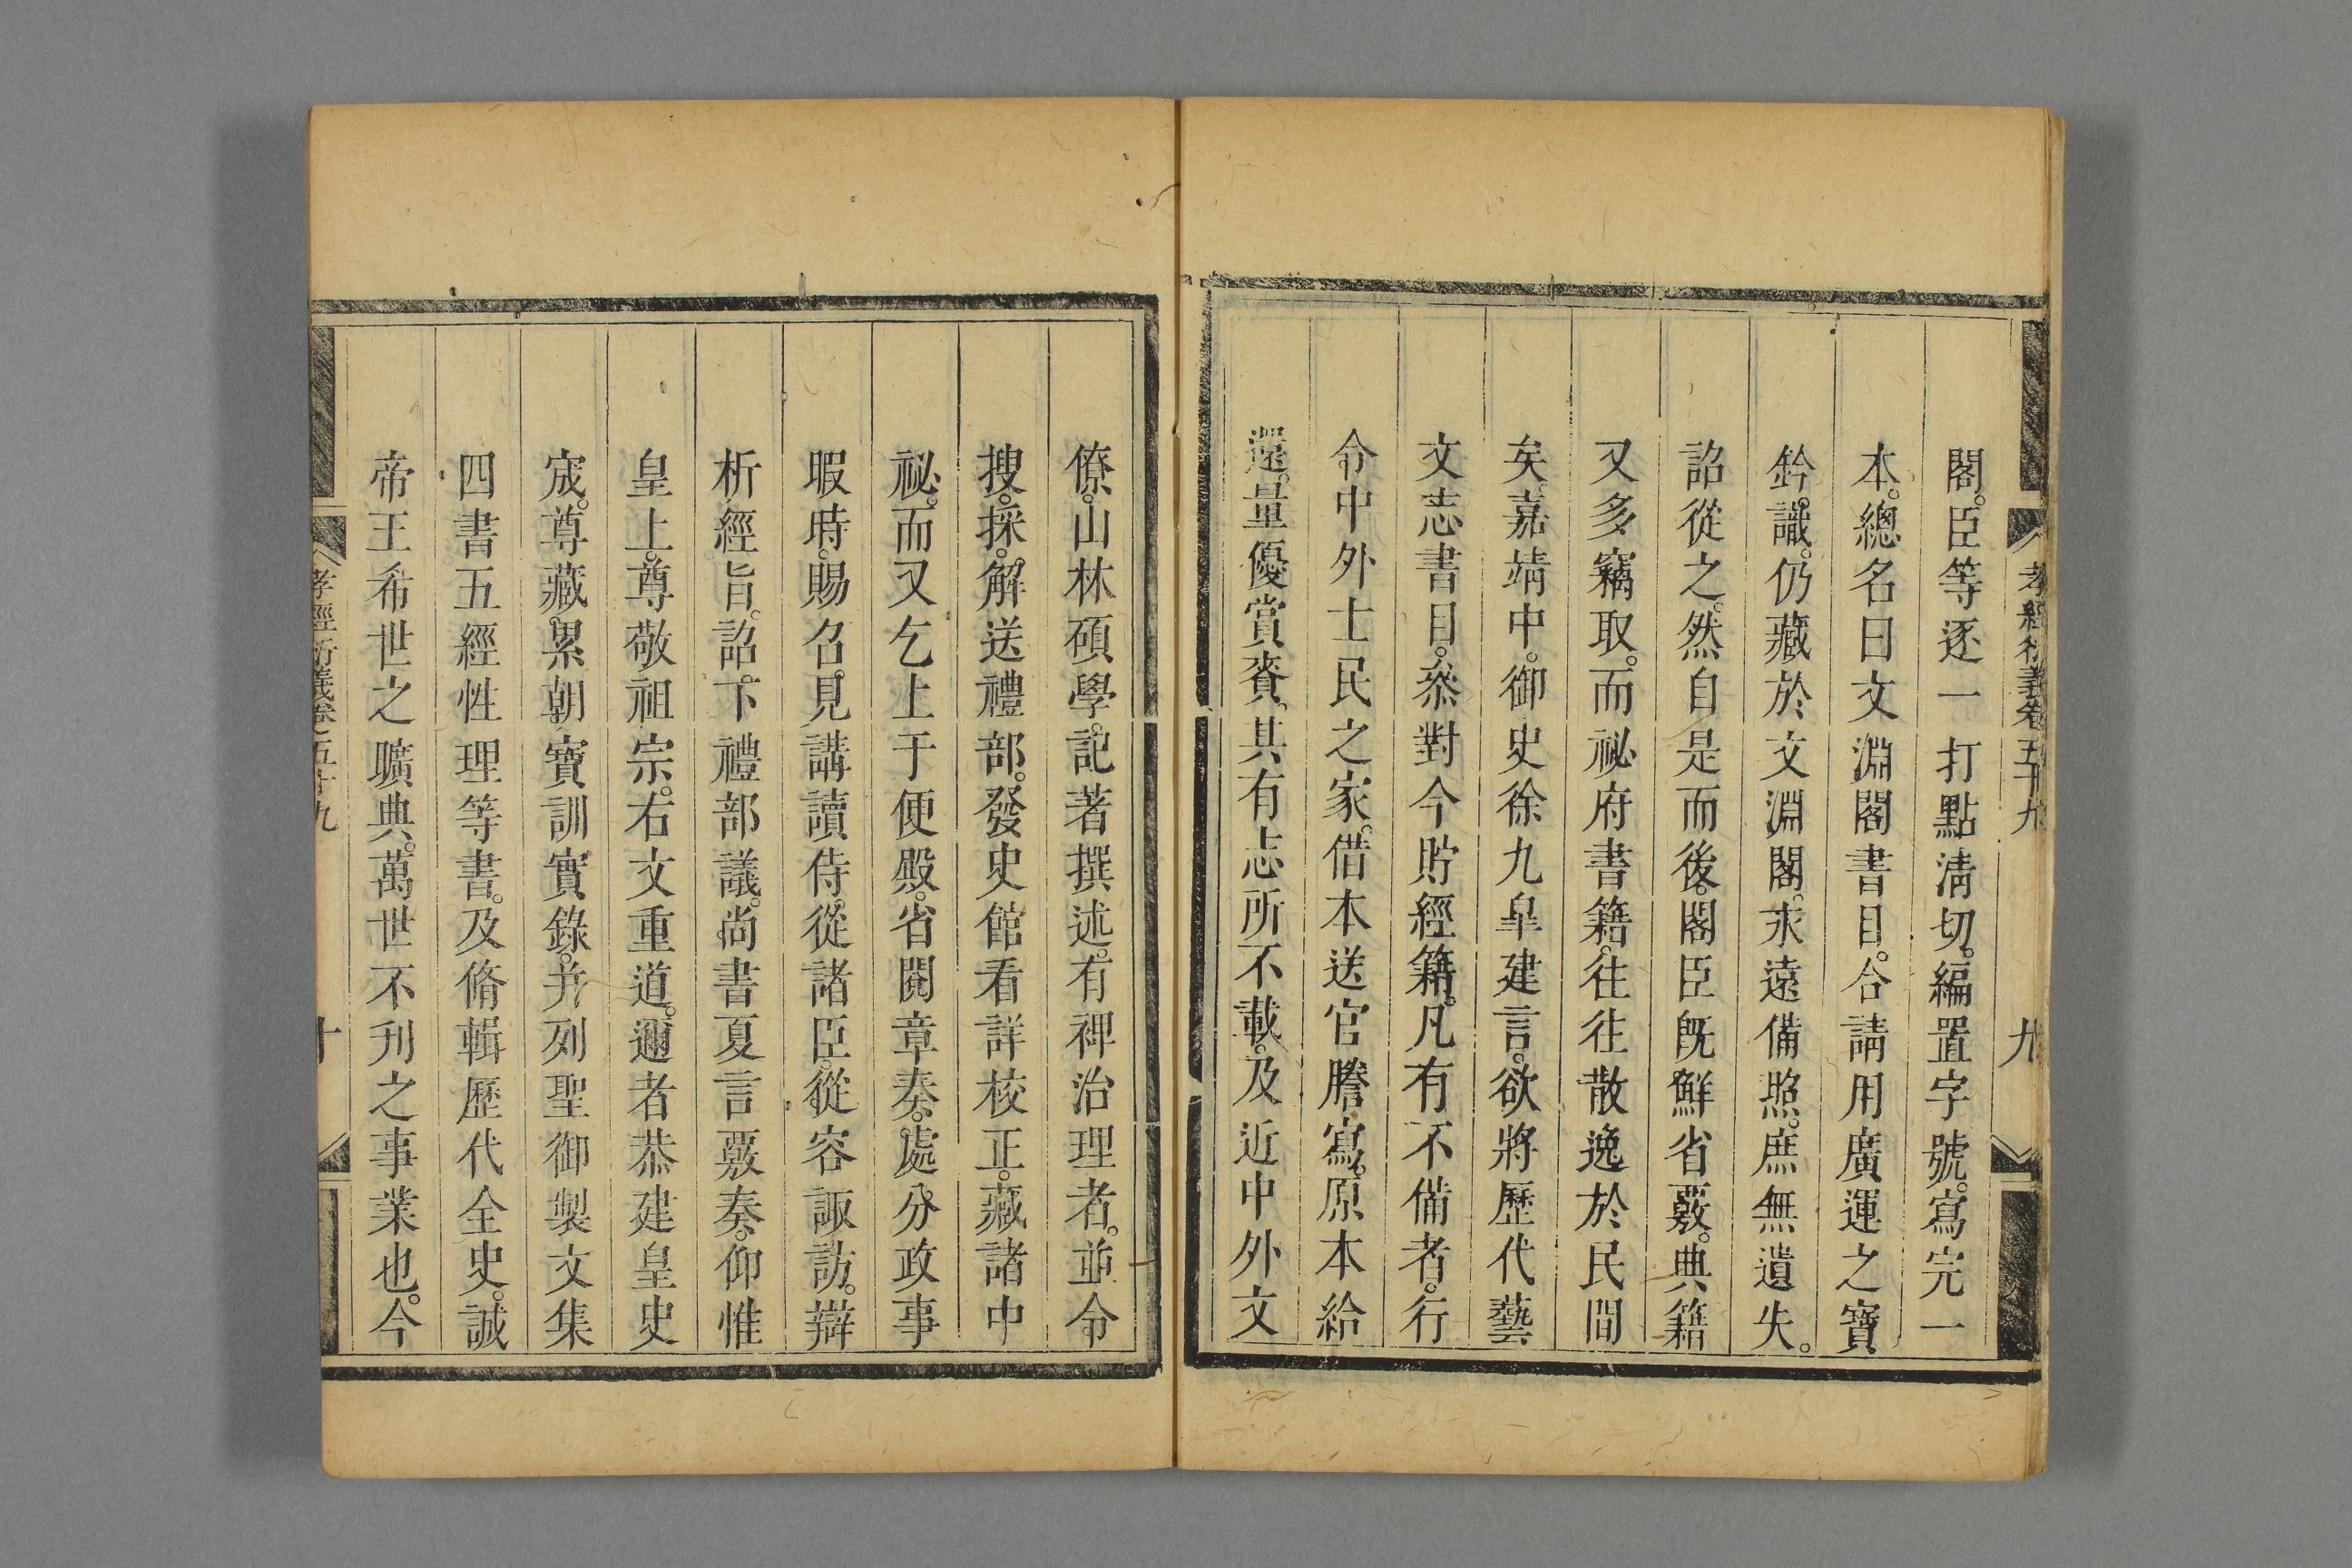 孝經衍義卷五十九
九
閣。臣等逐一打點淸切。編置字號。寫完一
本。總名曰文淵閣書目。合請用廣運之寶
鈐識。仍藏於文淵閣。永遠備照。庶無遺失。
詔從之。然自是而後。閣臣旣鮮省覈。典籍
又多竊取。而祕府書籍。往往散逸於民間
矣。嘉靖中。御史徐九臯建言。欲將歷代藝
文志書目。叅對今貯經籍。凡有不備者。行
令中外士民之家。借本送官謄寫。原本給
還。量優賞賚。其有志所不載。及近中外文
僚。山林碩學。記著撰述。有裨治理者。並令
搜採。解送禮部。發史館看詳校正。藏諸中
祕。而又乞上于便殿。省閱章奏。處分政事
暇時。賜召見講讀侍從諸臣。從容諏訪。辯
析經旨。詔下禮部議。尚書夏言覈奏。仰惟
皇上。尊敬祖宗。右文重道。邇者恭建皇史
宬。尊藏累朝寶訓實錄。并列聖御製文集
四書五經性理等書。及脩輯歷代全史。誠
帝王希世之曠典。萬世不刋之事業也。今
孝經衍義卷之五十九
十